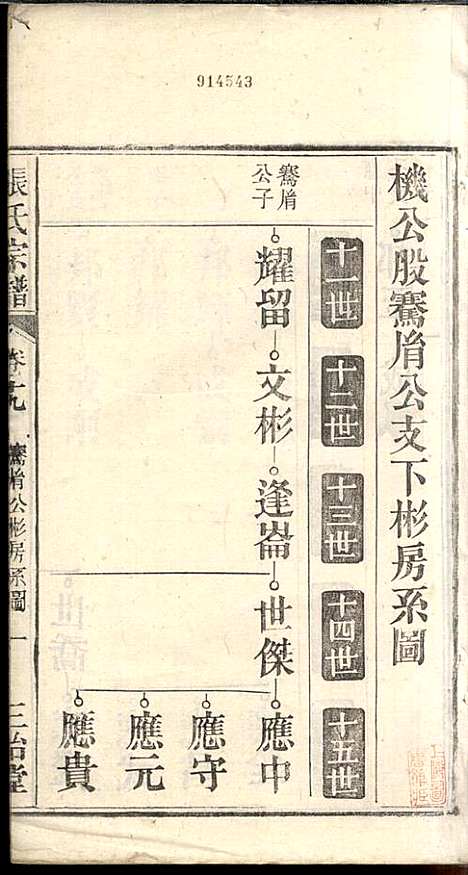 914543
機公股騫脋公支下彬房系圖
十一世
十二世
十三世
十四世
十五世
騫脋
公子
耀留
文彬
逢崙
世傑
應中
應守
應元
應貴
張氏宗譜
卷十九
騫脋公彬房系圖
一
三治堂